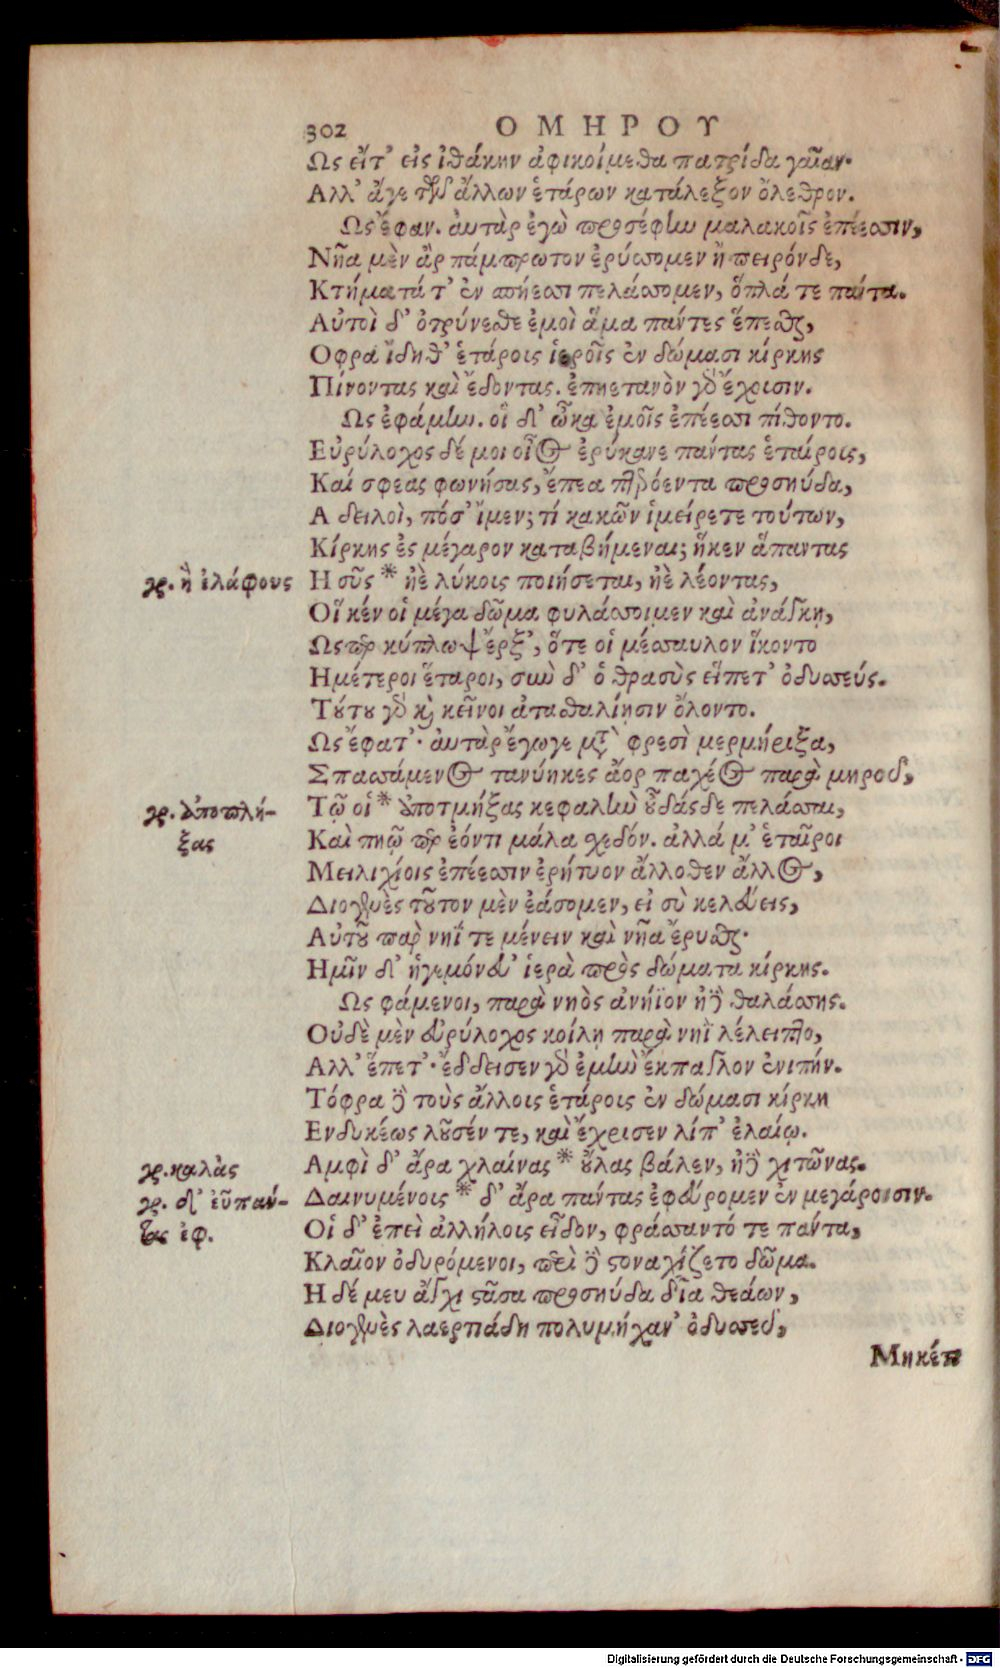 302 ΟΜΗΡΟΥ
Ως εἴτ' εἰς ἰθάκην ἀφικοίμεθα πατρίδα γαῖαν·
Αλλ' ἄγε τῶν ἄλλων ἑτάρων κατάλεξον ὄλεθρον.
Ως ἔφαν. ἀυτὰρ ἐγὼ προσέφην μαλακοῖς ἐπέεσσιν,
Νῆα μὲν ἂρ πάμπρωτον ἐρύσσομεν ἤπειρόνδε,
Κτήματά τ' ἐν σπήεσσι πελάσσομεν, ὅπλά τε πάντα.
Αὐτοὶ δ' ὀτρύνεσθε ἐμοὶ ἅμα πάντες ἕπεσθαι,
Οφρα ἴδηθ' ἑτάροις ἱεροῖς ἐν δώμασι κίρκης
Πίνοντας καὶ ἔδοντας. ἐπηετανὸν γὸ ἔχοισιν.
Ως ἐφάμην. οἳ δ' ὦκα ἐμοῖς ἐπέεσσι πίθοντο.
Εὐρύλοχος δέ μοι οἶος ἐρύκανε πάντας ἑταίροις,
Καί σφεας φωνήσας, ἔπεα πτερόεντα προσηύδα,
Α δειλοὶ, πόσ' ἴμεν; τί κακῶν ἱμείρετε τούτων,
Κίρκης ἐς μέγαρον καταβήμεναι; ἥκεν ἅπαντας
γρ. ἢ ἐλάφους Η σῦς * ἠὲ λύκοις ποιήσεται, ἠὲ λέοντας,
Οἵ κέν οἱ μέγα δῶμα φυλάσσοιμεν καὶ ἀνάγκῃ,
Ως περ κύκλωψ ἔρξ', ὅτε οἱ μέσσαυλον ἵκοντο
Ημέτεροι ἕταροι, σὺν δ' ὁ θρασὺς εἵπετ' ὀδυσσεύς.
Τούτου γὸ καὶ κεῖνοι ἀτασθαλίῃσιν ὄλοντο.
Ως ἔφατ'· ἀυτὰρ ἔγωγε μετὰ φρεσὶ μερμήριξα,
Σπασσάμενος τανύηκες ἄορ παχέος παρὰ μηροῦ,
γρ. ἀποπλή- Τῷ οἱ * ἀποτμήξας κεφαλὴν οὖδάσδε πελάσσαι,
ξας Καὶ πηῷ περ ἐόντι μάλα σχεδόν. ἀλλά μ' ἑταῖροι
Μειλιχίοις ἐπέεσσιν ἐρήτυον ἄλλοθεν ἄλλος,
Διογενὲς τοῦτον μὲν ἐάσομεν, εἰ σὺ κελεύεις,
Αὐτοῦ παρ νηΐ τε μένειν καὶ νῆα ἔρυσθαι·
Ημῖν δ' ἡγεμόνευ' ἱερὰ πρὸς δώματα κίρκης.
Ως φάμενοι, παρὰ νηὸς ἀνήϊον ἠδὲ θαλάσσης.
Οὐδὲ μὲν εὐρύλοχος κοίλῃ παρὰ νηῒ λέλειπτο,
Αλλ' ἕπετ'· ἔδδεισεν γὸ ἐμὴν ἔκπαγλον ἐνιπήν.
Τόφρα δὲ τοὺς ἄλλοις ἑτάροις ἐν δώμασι κίρκη
Ενδυκέως λοῦσέν τε, καὶ ἔχρισεν λίπ' ἐλαίῳ.
γρ. καλὰς Αμφὶ δ' ἄρα χλαίνας * οὔλας βάλεν, ἠδὲ χιτῶνας.
γρ. δ' ἐῢ παν- Δαινυμένοις * δ' ἄρα πάντας ἐφεύρομεν ἐν μεγάροισιν.
τας ἐφ. Οἱ δ' ἐπεὶ ἀλλήλοις εἶδον, φράσσαντό τε πάντα,
Κλαῖον ὀδυρόμενοι, περὶ δὲ στοναχίζετο δῶμα.
Η δέ μευ ἄγχι στᾶσα προσηύδα δῖα θεάων,
Διογενὲς λαερτιάδη πολυμήχαν' ὀδυσσεῦ,
Μηκέτι
Digitalisierung gefördert durch die Deutsche Forschungsgemeinschaft - DFG